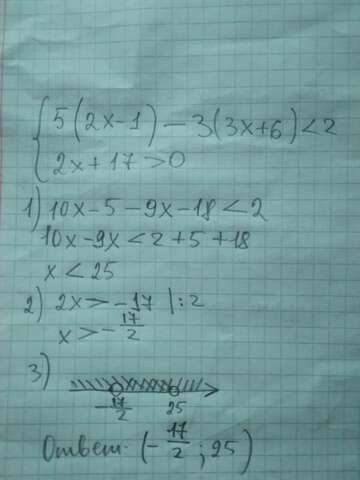 { 5(2x-1)-3(3x+6)<2
2x+17>0
1) 10x-5-9x-18<2
10x-9x<2+5+18
x<25
2) 2x>-17 |:2
x>-17/2
3)
-17/2 25
Ответ: (-17/2; 25)